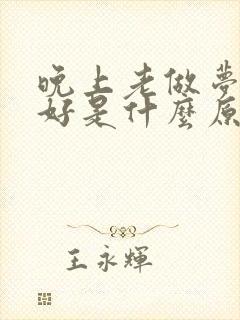 晚上老做夢
好是什麼原
王永輝